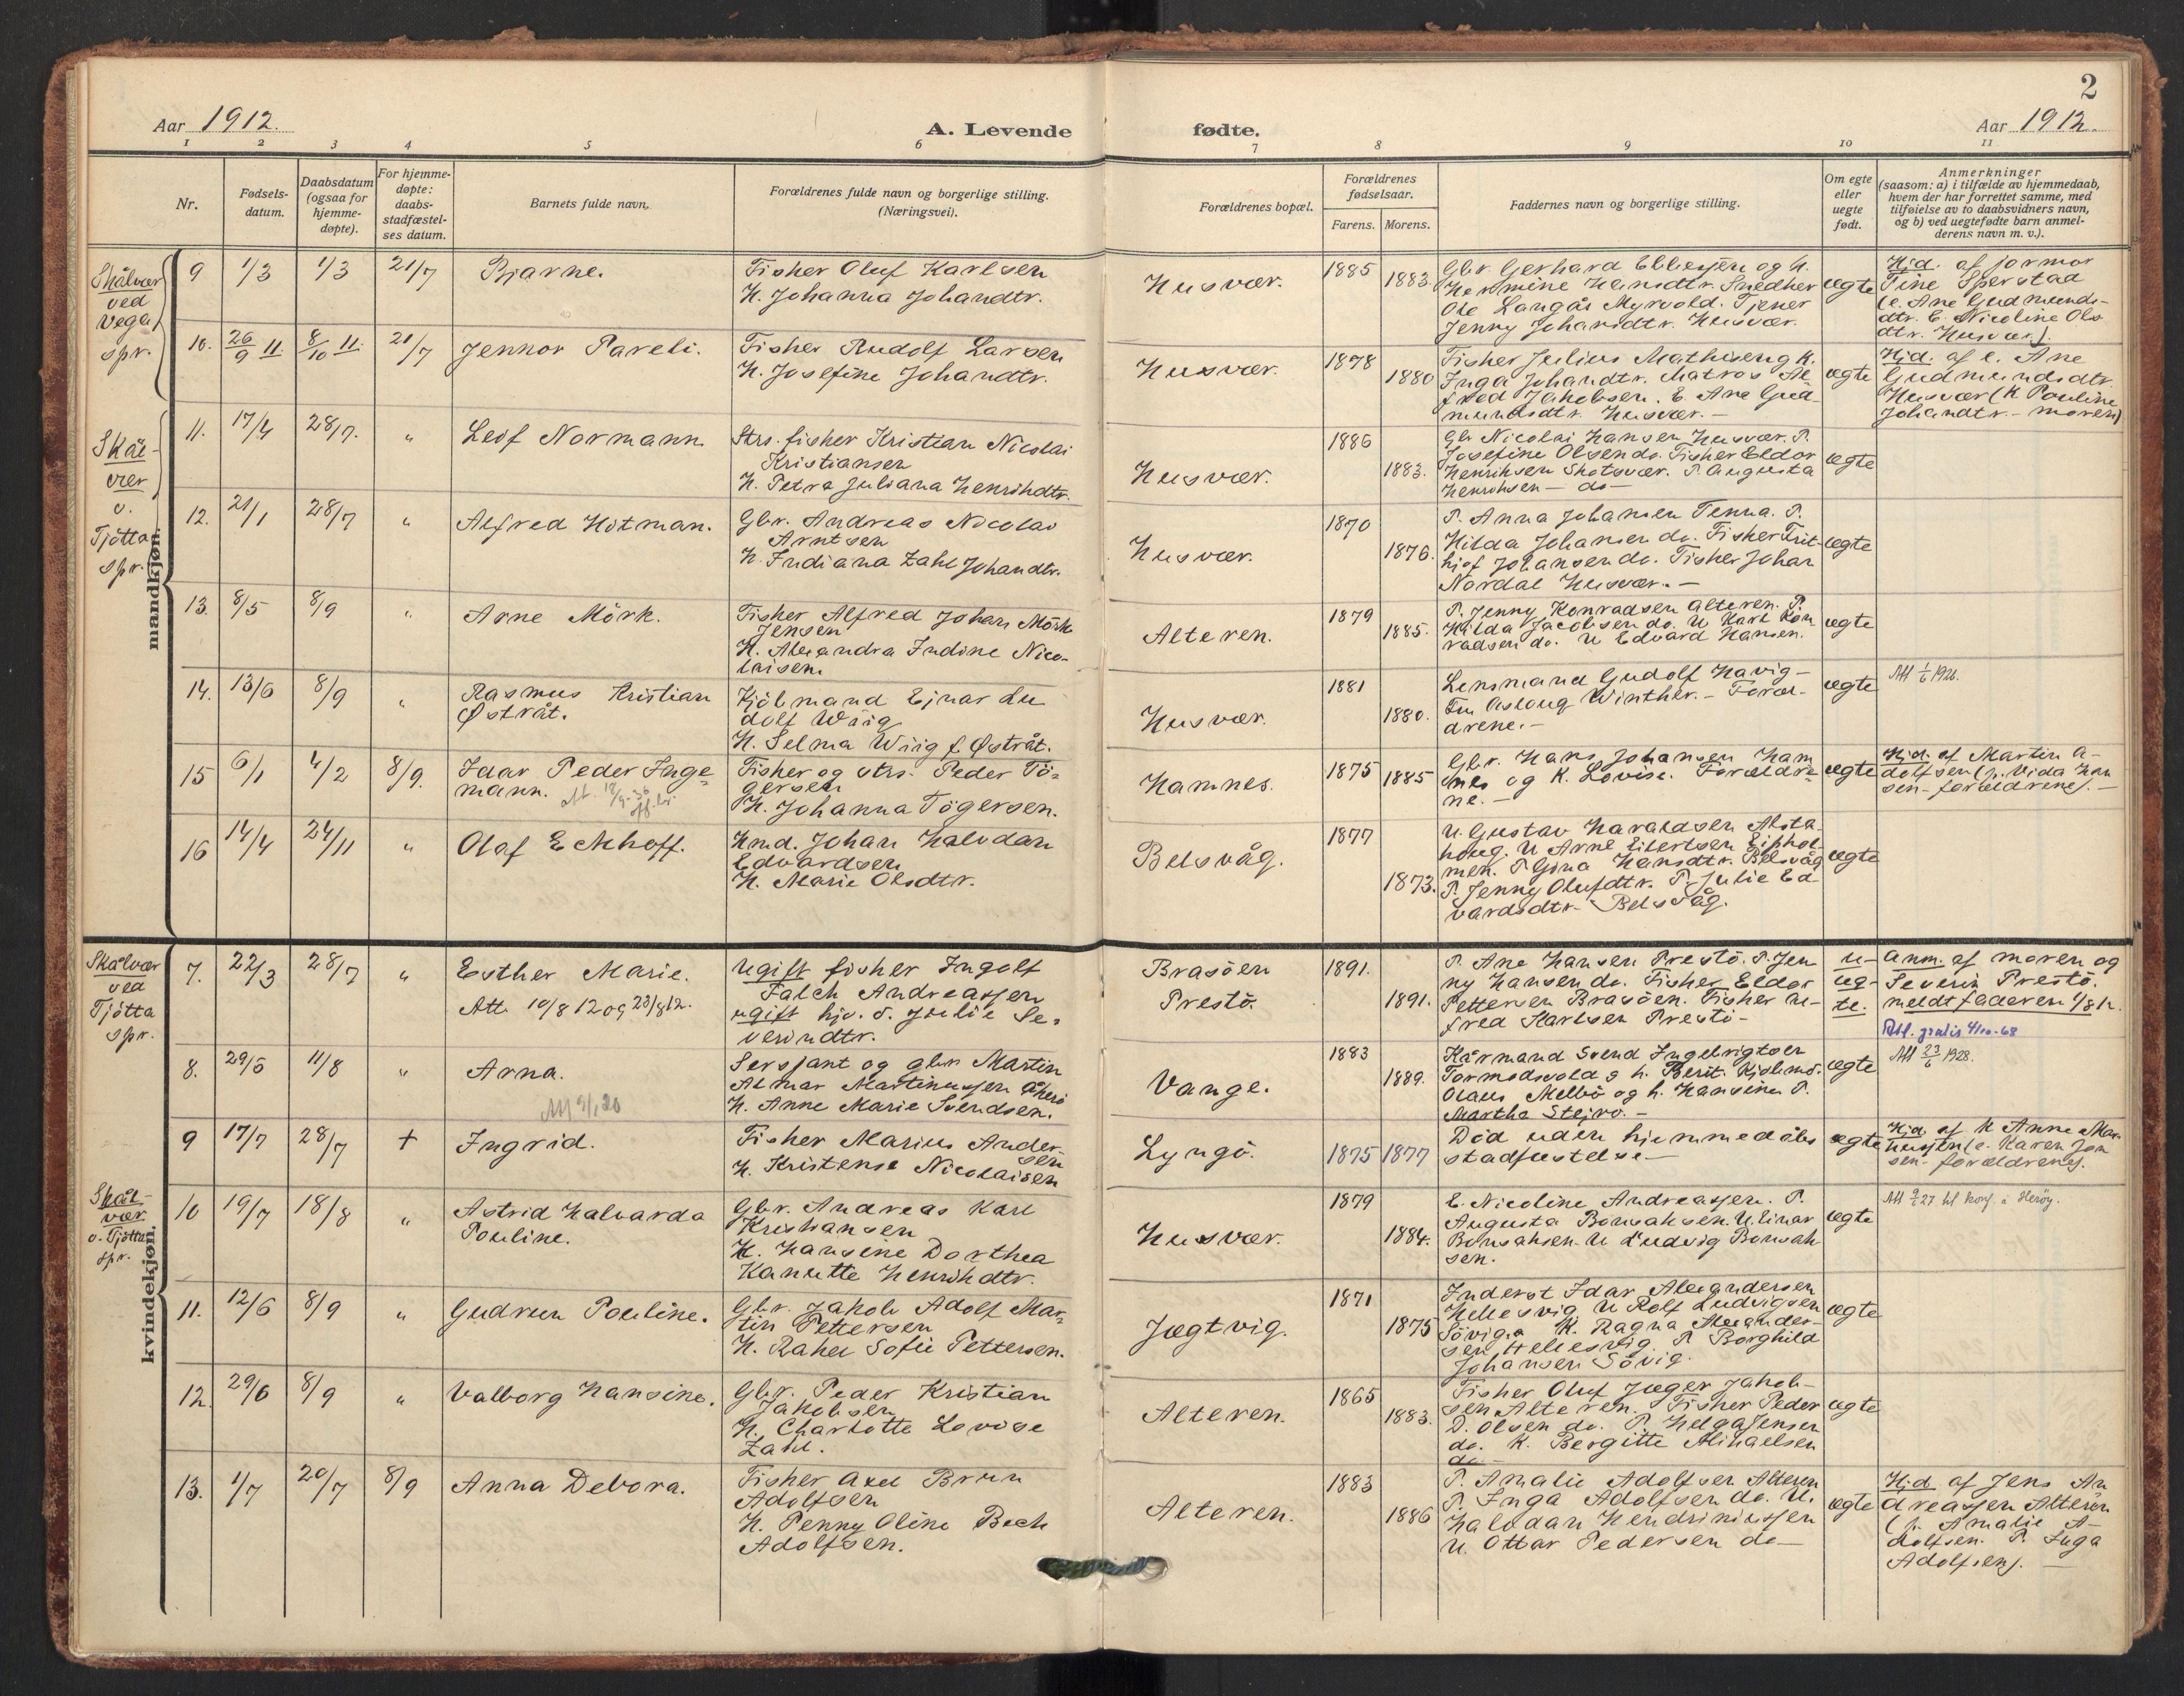 2
Aar 1912.
A. Levende
fødte.
Aar 1912.
1 2 3 4 5 6 7 8 9 10 11
Nr.
Fødsels-
datum.
Daabsdatum
(ogsaa for
hjemme-
døpte).
For hjemme-
døpte:
daabs-
stadfæstel-
ses datum.
Barnets fulde navn.
Forældrenes fulde navn og borgerlige stilling.
(Næringsvei).
Forældrenes bopæl.
Forældrenes
fødselsaar.
Farens. Morens.
Faddernes navn og borgerlige stilling.
Om egte
eller
uegte
født.
Anmerkninger
(saasom: a) i tilfælde av hjemmedaab,
hvem der har forrettet samme, med
tilføielse av to daabsvidners navn,
og b) ved uegtefødte barn anmel-
derens navn m. v.).
mandkjøn.
Skålvær
ved
Vega
spr.
9 1/3 1/3 21/7 Bjarne.
Fisker Oluf Karlsen
H. Johanna Johandtr.
Husvær.
1885
1883.
Gbr. Gerhard Ebbesen og h.
Hermine Hansdtr. Snedker
Ole Langås Myrvold. Tjener
Jenny Johansdtr. Husvær.
ægte
Hjd. af jormor
Tine Sperstad
(e. Ane Gudmunds-
dtr. E. Nicoline Ols
dtr. Husvær).
10. 26/9 11. 8/10 11. 21/7 Jennor Pareli.
Fisker Rudolf Larsen
H. Josefine Johandtr.
Husvær.
1878
1880
Fisker Julius Mathisen g k.
Inga Johandtr. Matros Al
fred Jakobsen. E. Ane Gud-
mundsdtr. Husvær.-
ægte
Hjd. af e. Ane
Gudmundsdtr.
Husvær (K Pouline
Johandtr. - moren)
Skål-
vær
v.
Tjøtta
spr.
11. 17/4 28/7. " Leif Normann
Strs. fisker Kristian Nicolai
Kristiansen
H. Petra Juliana Henrikdtr.
Husvær.
1886
1883.
Gbr Nicolai Hansen Husvær. P.
Josefine Olsen do. Fisker Eldor
Henriksen Skotsvær. P. Augusta
Henriksen - do -
ægte
12. 21/1 28/7 " Alfred Hitman.
Gbr. Andreas Nicolai
Arntsen
H. Indiana Zahl Johandtr.
Husvær.
1870
1876.
P. Anna Johansen Tenna. P.
Hilda Johansen do. Fisker Frit-
hjof Johansen do. Fisker Johan
Nordal Husvær.-
ægte
13. 8/5 8/9 " Arne Mörk.
Fisker Alfred Johan Mörk
Jensen
H. Alexandra Indine Nico-
laisen.
Alteren.
1879
1885.
P. Jenny Konradsen Alteren. P.
Hilda Jacobsen do. U Karl Kon
radsen do. U Edvard Hansen.
ægte
14. 13/6 8/9 " Rasmus Kristian
Østråt.
Kjöbmand Ejnar Lu
dolf Wiig
H. Selma Wiig f. Østråt.
Husvær.
1881
1880.
Lensmand Gudolf Havig-
Fru Aslaug Winther. - Foræl-
drene.-
ægte
Att 1/6 1926.
15 6/1 4/2 8/9. Idar Peder Inge-
mann.
Fisker og strs. Peder Tö-
gersen
H. Johanna Tögersen.
Hamnes.
1875
1885
Gbr. Hans Johansen Ham
nes og K. Lovise. Forældre-
ne.-
ægte
Hjd. af Martin A-
dolfsen (p. Vida Han
sen - forældrene). -
16 14/4 24/11 " Olaf Eckhoff.
Hmd. Johan Halvdan
Edvardsen
H. Marie Olsdtr.
Belsvåg.
1877
1873.
U. Gustav Haraldsen Alsta
houg. U Arne Eilertsen Eiphol-
men. P. Gina Hansdtr. Belsvåg
P. Jenny Olufdtr. P. Julie Ed
vardsdtr. Belsvåg.
ægte
kvindekjøn.
Skålvær
ved
Tjøtta
spr.
7. 22/3 28/7 " Esther Marie.
Att. 10/8 12 og 23/8 12.
Ugift fisker Ingolf
Falch Andreassen
ugift hjv. d. Julie Se-
verindtr.
Brasöen
Prestö.
1891.
1891.
P. Ane Hansen Prestö. P. Jen
ny Hansen do. Fisker Eldor
Pettersen Brasöen. Fisker U-
fred Karlsen Prestö-
u-
æg-
te.
Anm. af moren og
Severin Prestö.
meldt faderen 1/8 12.
Att. gratis 4/10-68
8. 29/5 11/8 " Arna.
Att 9/1 20
Sersjant og gbr Martin
Almar Martinussen
H. Anne Marie Svendsen.
Vange.
1883
1889.
Kårmand Svend Ingebrigtsen
Tormodsvold g h. Berit. Kjøbmd.
Olaus Melbö og h. Hansine P.
Martha Stejro.-
ægte
Att 23/6 1928.
9 17/7 28/7 + Ingrid.
Fisker Marius Ander-
sen
H. Kristense Nicolaisen
Lyngö.
1875 1877
Död uden hjemmedåbs
stadfæstelse-
ægte
Hjd. af K Anne Mar
(e. Karen Jan
sen - forældrene).
Skål-
vær
v. Tjøtta
spr.
10 19/7 18/8 " Astrid Halvarda
Pouline.
Gbr. Andreas Karl
Kristiansen
H. Hansine Dorthea
Kanutte Henrikdtr.
Husvær.
1879
1884.
E. Nicoline Andreassen. P.
Augusta Bonsaksen. U. Einar
Bonsaksen. U Ludvig Bonsak
sen.
ægte
Att 9/2 27 til konf. i Herøy.
11. 12/6 8/9 " Gudrun Pouline.
Gbr. Jakob Adolf Mar-
tin Pettersen
H. Rahel Sofie Pettersen.
Jægtvig.
1871
1875
Inderst Idar Alexandersen
Hellesvig U Rolf Ludvigsen
Sövig. K. Ragna Alexander-
sen Hellesvig P Borghild
Johansen Sövig.
ægte
12. 29/6 8/9 " Valborg Hansine.
Gbr. Peder Kristian
Jakobsen
H. Charlotte Lovise
Zahl.
Alteren.
1865
1883.
Fisker Oluf Jæger Jakob-
sen Alteren. Fisker Peder
D. Olsen do. P. Helga Jensen
do. K. Bergitte Mikaelsen
do -
ægte
13. 1/7 20/7 8/9 Anna Debora.
Fisker Axel Brun
Adolfsen
H. Penny Oline Bech
Adolfsen.
Alteren.
1883
1886
P. Amalie Adolfsen Alteren
P. Inga Adolfsen do. U.
Halvdan Hendriniussen
U. Ottar Pedersen do-
ægte
Hjd. af Jens An
dreassen Alteren
(p. Amalie A-
dolfsen. P. Inga
Adolfsen). -